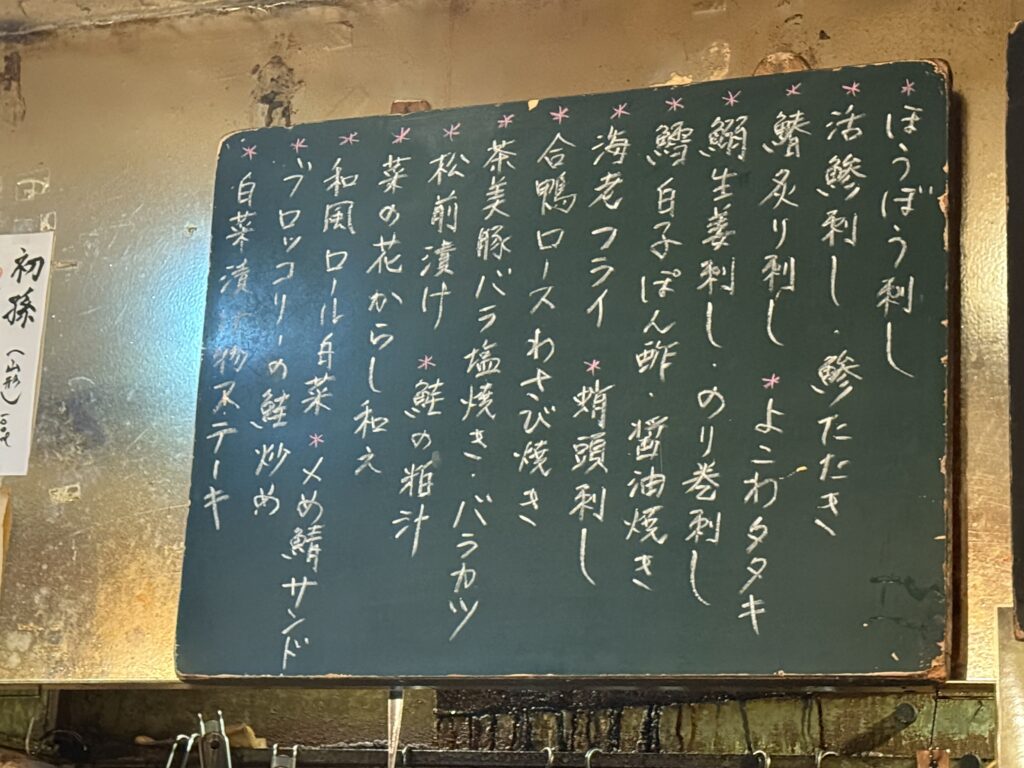 *ほうぼう刺し
*活鯵刺し・鯵たたき
*鰆炙り刺し *よこわタタキ
*鰯生姜刺し・のり巻刺し
*鱈白子ぽん酢・醤油焼き
*海老フライ *蛸頭刺し
*合鴨ロースわさび焼き
*茶美豚バラ塩焼き・バラカツ
*松前漬け *鮭の粕汁
*菜の花からし和え
*和風ロール白菜 *〆め鯖サンド
*ブロッコリーの鮭炒め
*白菜漬け物ステーキ
初孫
(山形)